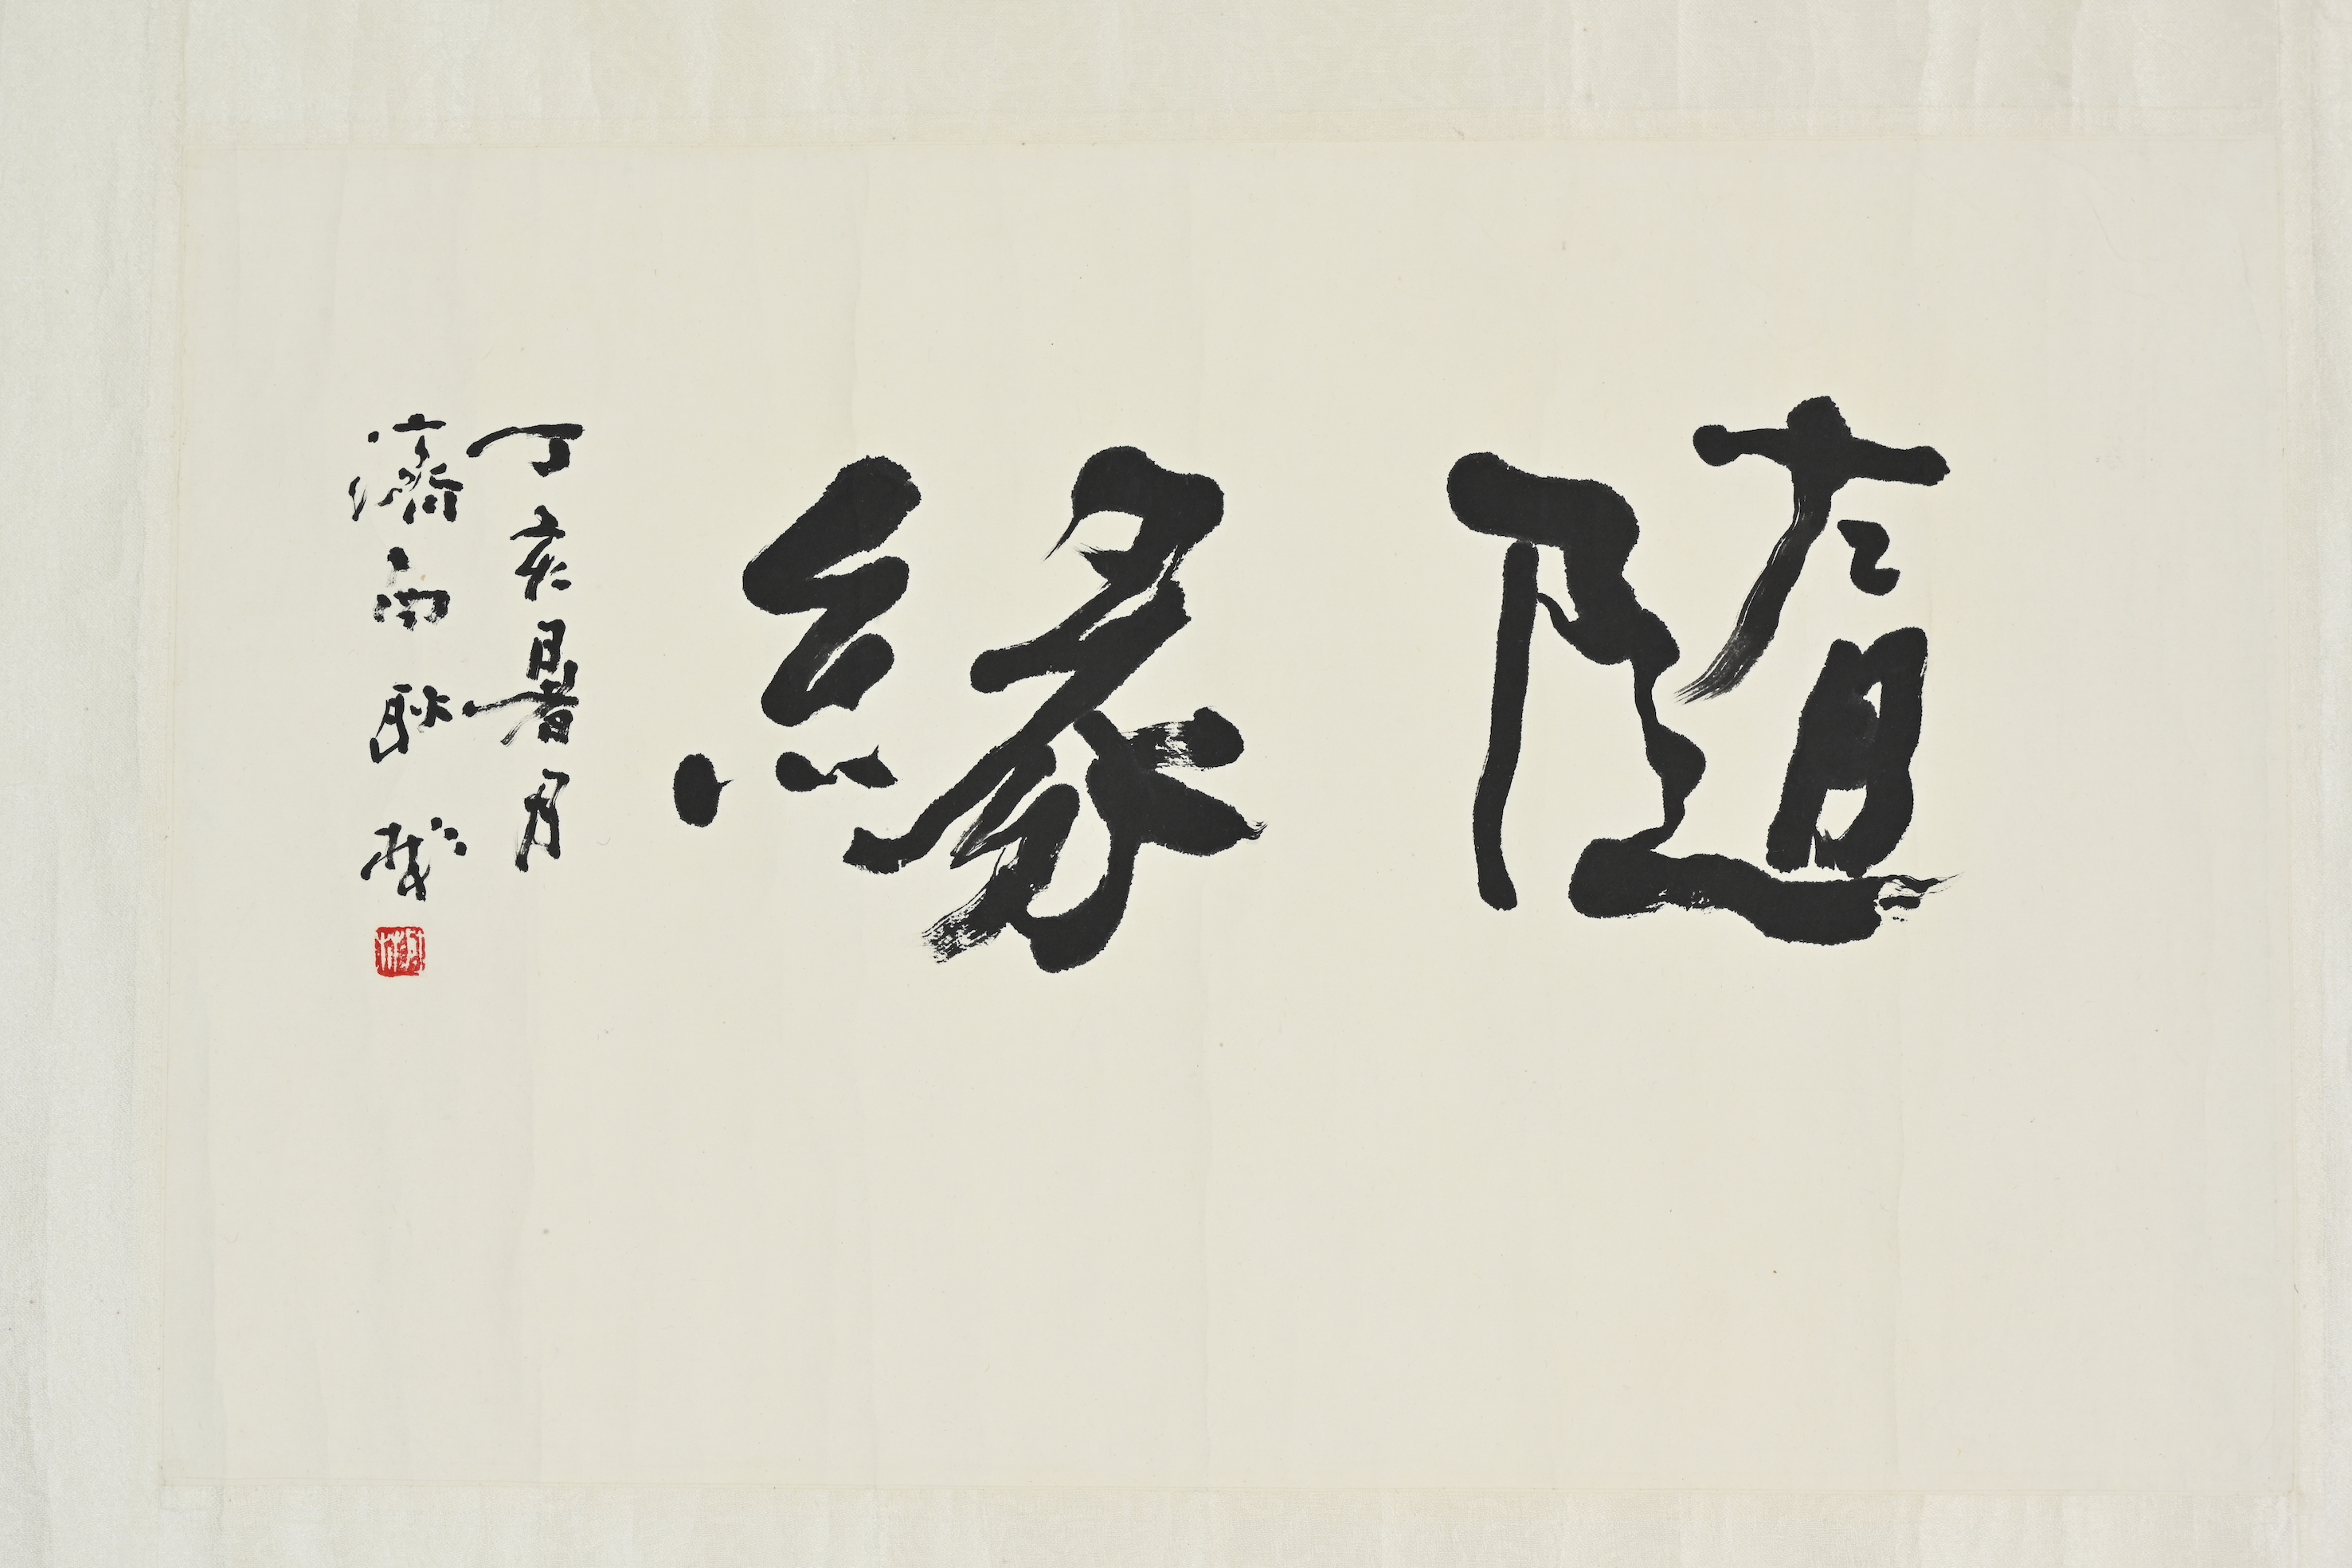 隨緣
丁亥暑月
濟南耿